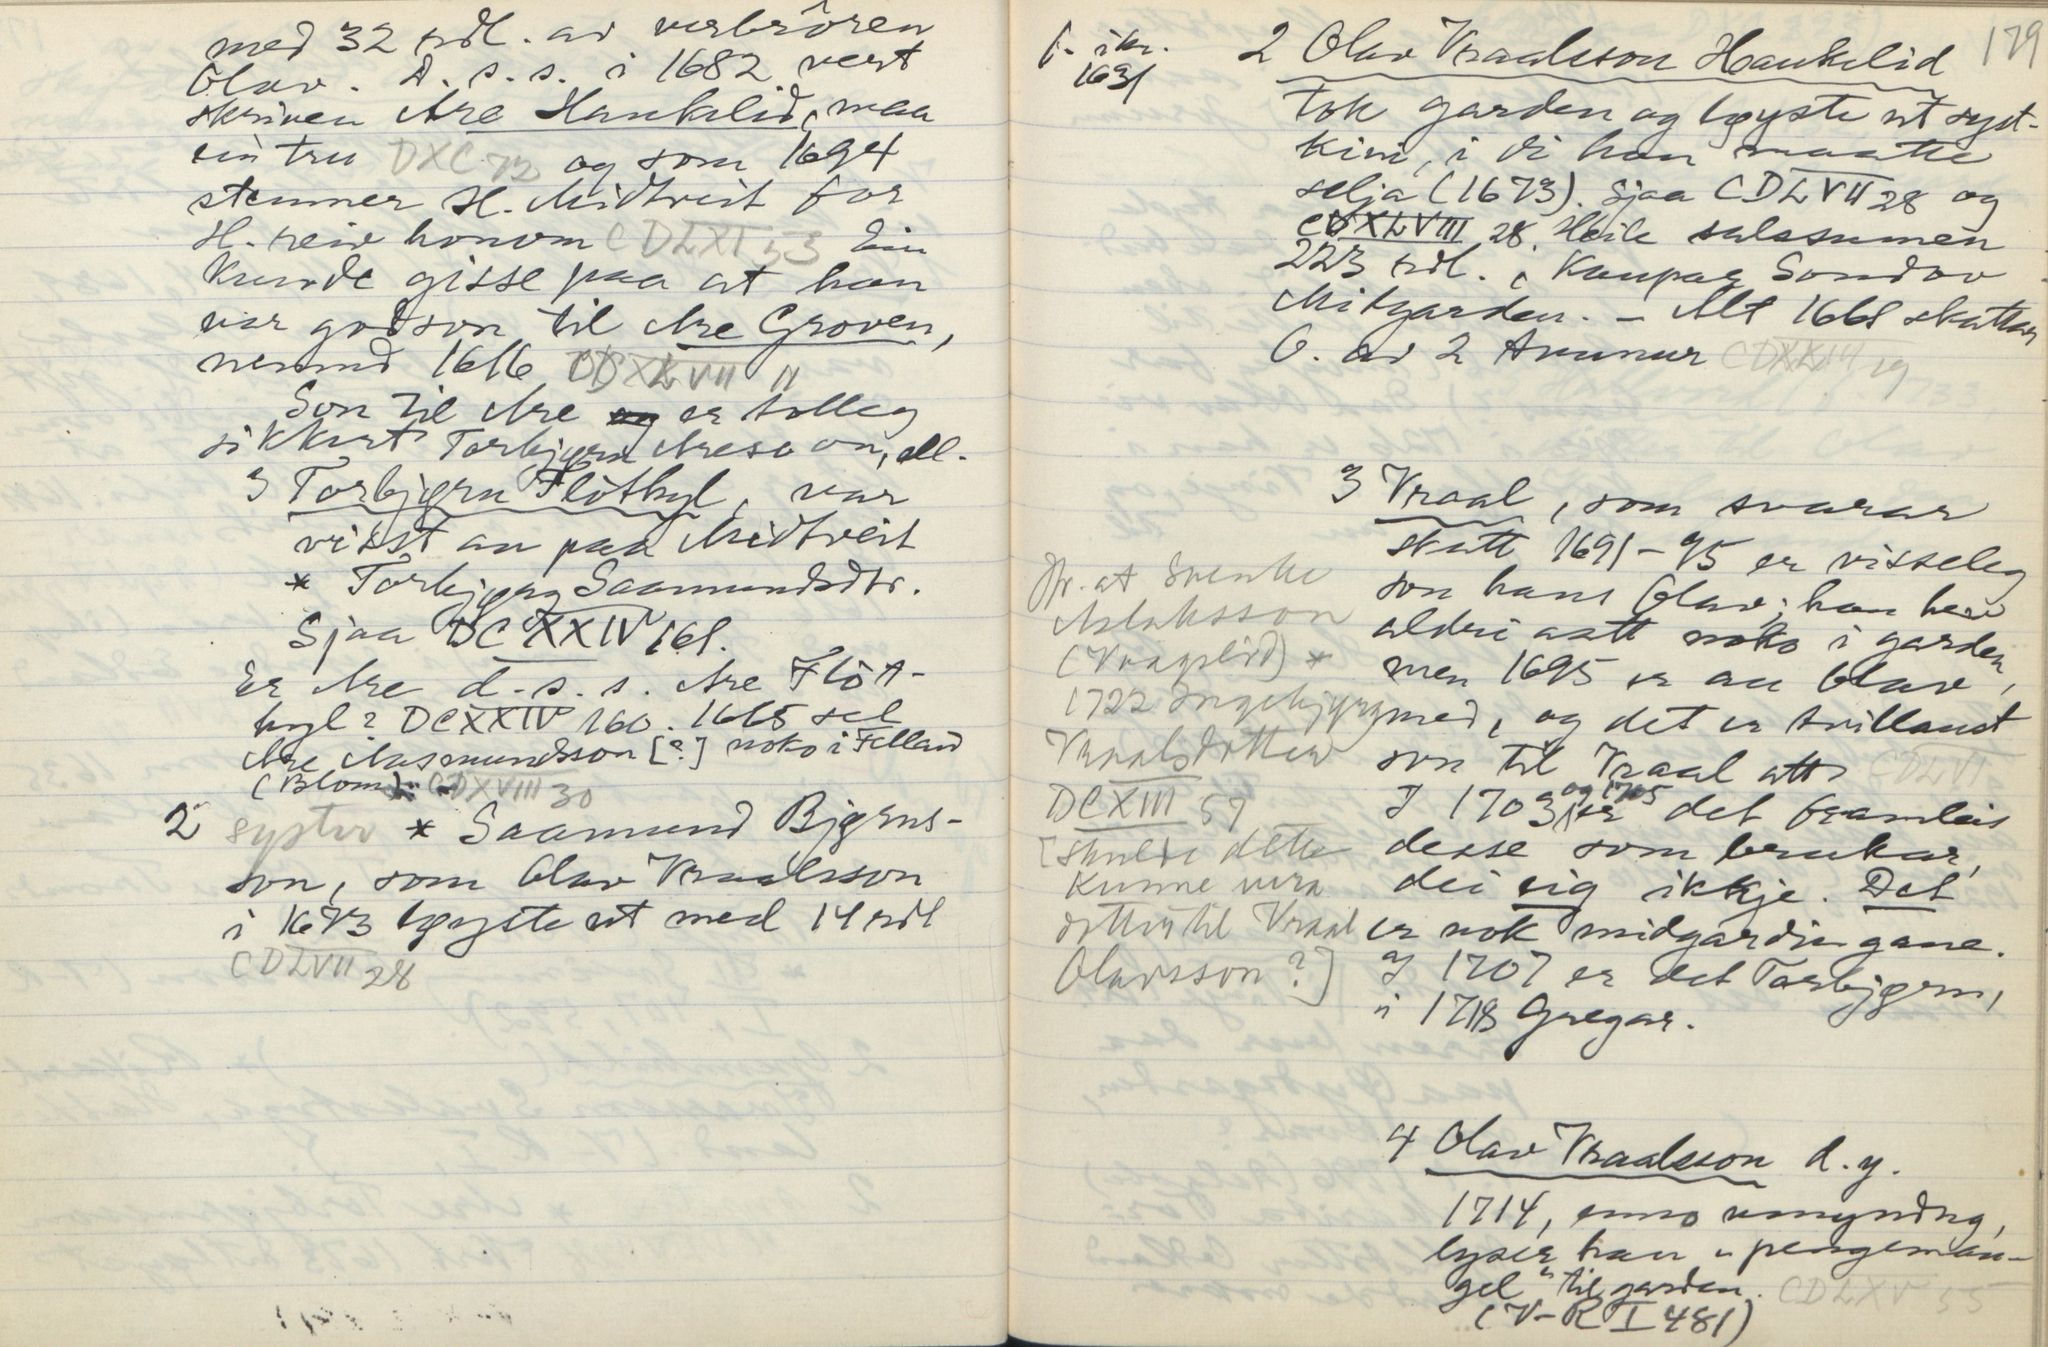 med 32 rdl. av verbrören
Olav. D. s. s. i 1682 vert
skriven Are Haukelid, maa
ein tru DXC 72 og som 1694
stemner H. Midtveit for
H. reiv honom CDLXI 53 Ein
kunde gisse paa at han
var godson til Are Groven,
nemnd 1616 DCXLVII 11
Son til Are er tolleg
sikkert Torbjørn Areson, ell.
3 Torbjørn Flöthyl, var
visst an paa Midtveit
* Torbjørg Saamundsdtr.
Sjaa DCXXIV 161.
Er Are d. s. s. Are Flöt-
hyl? DCXXIV 160. 1665 sel
Are Aasmundsson [?] noko i Felland
(Blom). CDXVIII 30
2 syster * Saamund Bjørns-
son, som Olav Vraalsson
i 1673 løyste ut med 14 rdl
CDLVII 28
179
f. ikr.
1631
2 Olav Vraalsson Haukelid
tok garden og løyste ut syst-
kini, i di han maatte
selja (1673). Sjaa CDLVII 28 og
CDXLVIII 28. Heile salssumen
223 rdl. i Kaupar Sondov
Mitgarden. – Alt 1661 skattar
O. av 2 tvunur CDXXIII 19
3 Vraal, som svarar
skatt 1691–95 er visseleg
son hans Olav; han hev
aldri aatt noko i garden,
men 1695 er an Olav
med, og det er truillaust
son til Vraal att CDLVI
I 1703 og 1705 er det framleis
desse som brukar,
dei eig ikkje. Det
er nok midgardingane.
I 1707 er det Torbjørn,
i 1718 Gregar.
Hr. at Svenke
Aslaksson
(Vaagslid) *
1722 Ingebjyrg
Vraalsdotter
DCXIII 57
[skulde dette
kunne vera
dotter til Vraal
Olavsson?]
4 Olav Vraalsson d. y.
1714, enno umyndug,
lyser han "pengeman-
gel" til garden. CDLXV 55
(V-R I 481)